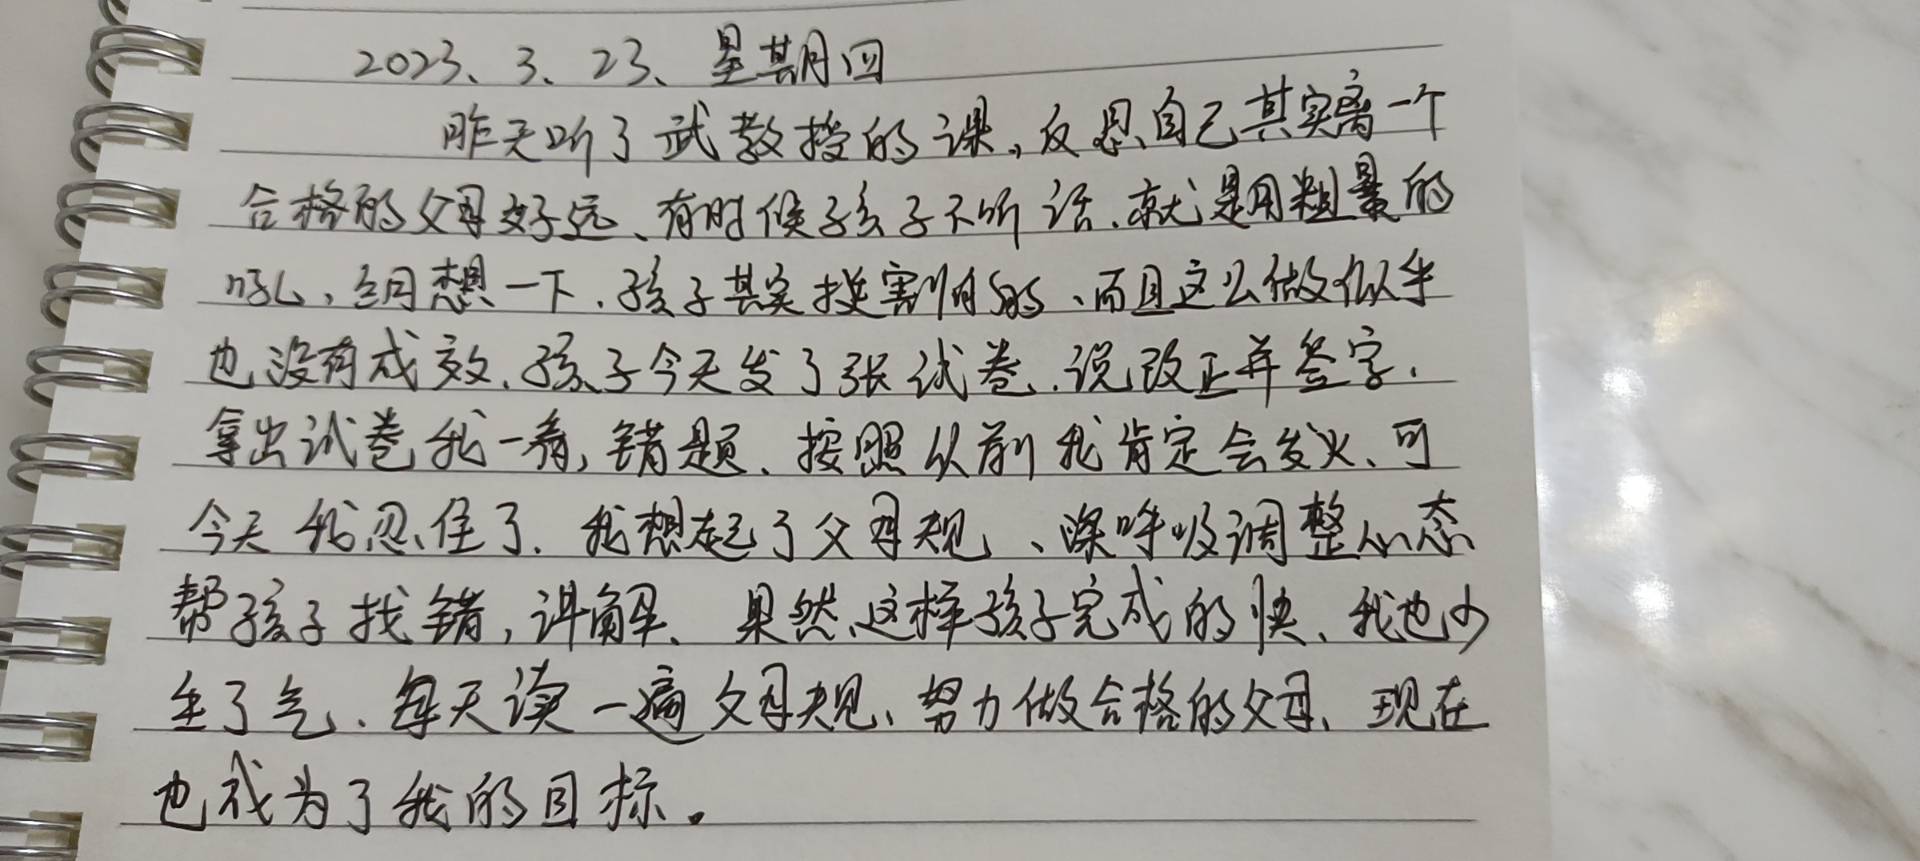 2023、3、23、星期四
昨天听了武教授的课,反思自己其实离一个
合格的父母好远、有时候孩子不听话、就是用粗暴的
吼、细想一下、孩子其实挺害怕的、而且这么做似乎
也没有成效、孩子今天发了张试卷、说改正并签字、
拿出试卷我一看,错题、按照从前我肯定会发火、可
今天我忍住了、我想起了父母规、深呼吸调整心态
帮孩子找错,讲解、果然、这样孩子完成的快、我也少
生了气、每天读一遍父母规、努力做合格的父母、现在
也成为了我的目标。